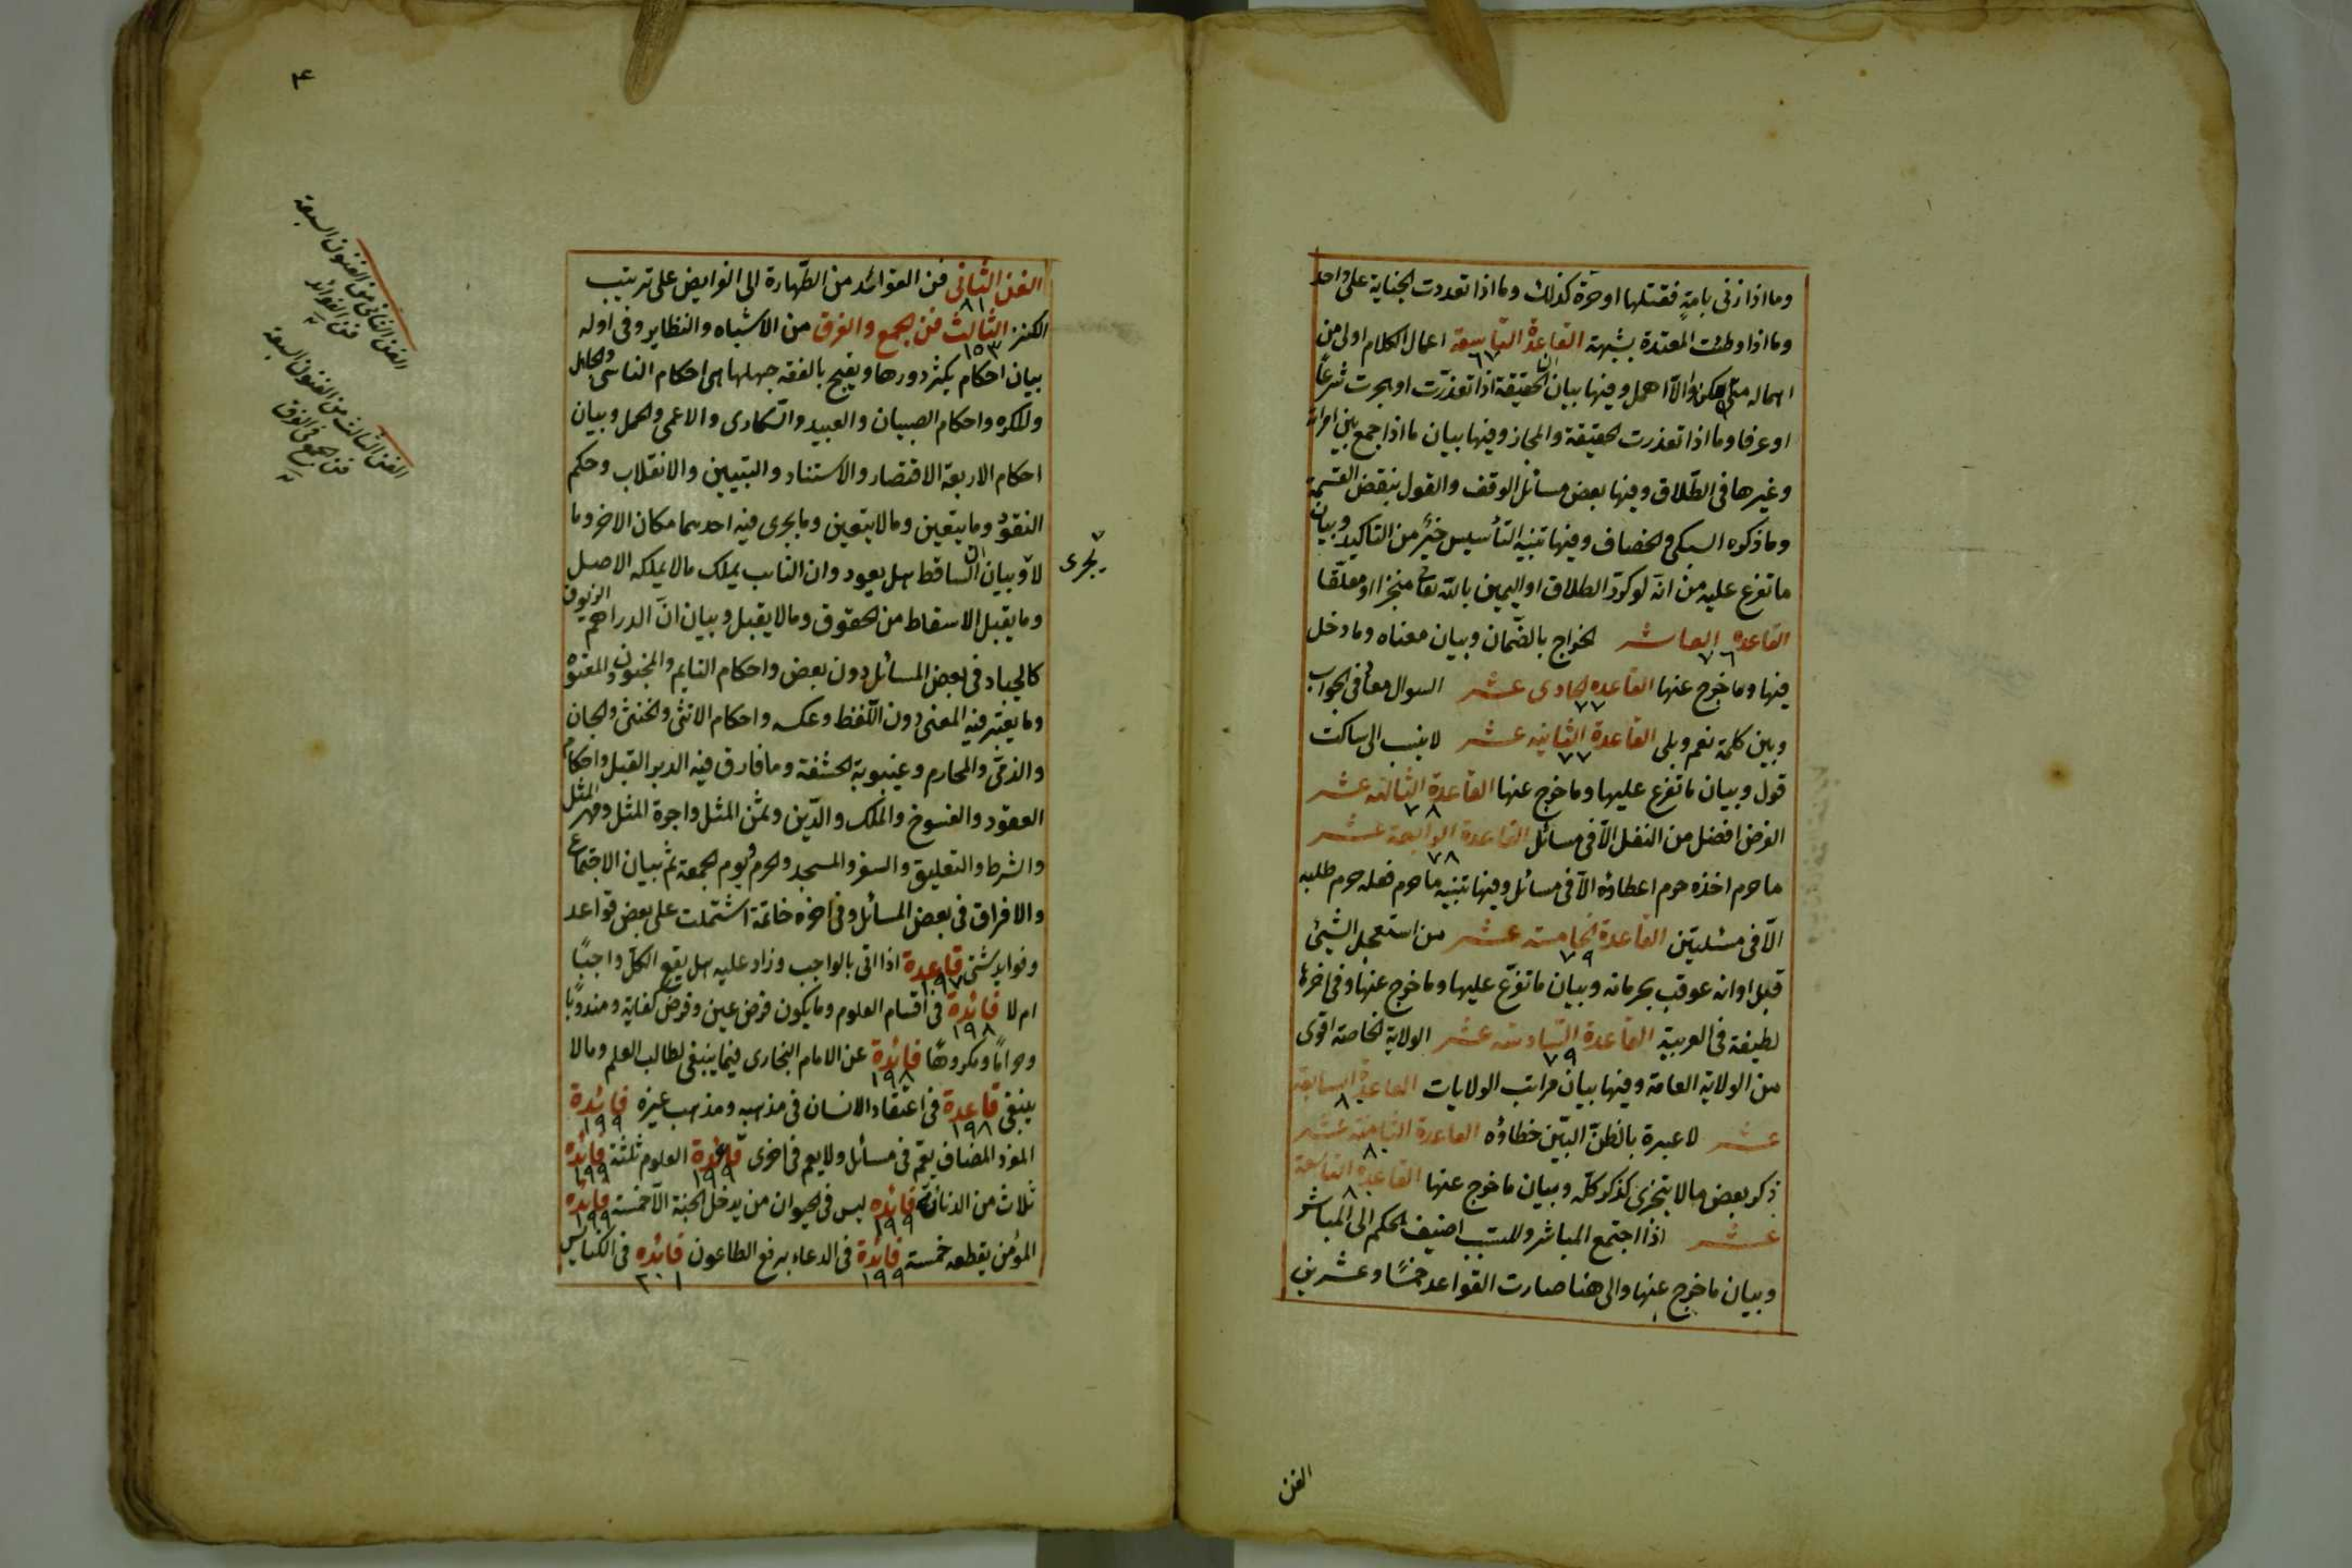 وما اذا زنى بامةٍ فقتلها او حرة كذلك وما اذا تعددت الجناية على واحد
وما اذا وطئت المعتدة بشبهة القاعدة التاسعة اعمال الكلام اولى من
٦٧
اهماله متى امكن والّا اهمل وفيها بيان ان الحقيقة اذا تعذّرت او هجرت شرعًا
او عرفا وما اذا تعذرت الحقيقة والمجاز وفيها بيان ما اذا جمع بين امراته
وغيرها فى الطّلاق وفيها بعض مسائل الوقف والقول بنقض القسمة
وما ذكره السبكى والخصاف وفيها تنبيه التأسيس خيرٌ من التاكيد وبيان
ما تفرع عليه من انّه لو كرّر الطلاق او اليمين بالله تعا منجزا او معلّقا
القاعدة العاشر الخراج بالضّمان وبيان معناه وما دخل
٧٦
فيها وما خرج عنها القاعدة الحادى عشر السوال معاً فى الجواب
٧٧
وبين كلمة نعم وبلى القاعدة الثانيه عشر لا ينسب الى ساكت
٧٧
قول وبيان ما تفرع عليها وما خرج عنها القاعدة الثالثه عشر
٧٨
الفرض افضل من النفل الّا فى مسائل القاعدة الرابعة عشر
٧٨
ما حرم اخذه حرم اعطاؤه الّا فى مسائل وفيها تنبيه ما حرم فعله حرم طلبه
الّا فى مسئلتين القاعدة الخامسه عشر من استعجل الشيئ
٧٩
قبل اوانه عوقب بحرمانه وبيان ما تفرّع عليها وما خرج عنها وفى اخرها
لطيفة فى العربية القاعدة السّادسه عشر الولاية الخاصة اقوى
٧٩
من الولاية العامة وفيها بيان مراتب الولايات القاعدة السابعة
٨
عشر لا عبرة بالظنّ البيّن خطاؤه القاعدة الثامنة عشر
٨
ذكر بعض ما لا يتجزى كذكر كلّه وبيان ما خرج عنها القاعدة التاسعة
٨
عشر اذا اجتمع المباشر والمتسبب اضيف الحكم الى المباشر
وبيان ما خرج عنها والى هنا صارت القواعد خمسًا وعشرين
الفن
٤
الفن الثّانى فن الفوائد من الطّهارة الى الفرايض على ترتيب
٨١
الكنز الثّالث فن الجمع والفرق من الاشباه والنظاير وفى اوله
١٥٣
بيان احكام يكثر دورها ويقبح بالفقه جهلها هى احكام الناسى والجاهل
والمكره واحكام الصبيان والعبيد والسّكارى والاعمى والحمل وبيان
احكام الاربعة الاقتصار والاستناد والتبيين والانقلاب وحكم
النقود وما يتعين وما لا يتعين وما يجرى فيه احدهما مكان الاخر وما
لا وبيان انّ السّاقط هل يعود وان النائب يملك ما لا يملكه الاصل
يجرى
وما يقبل الاسقاط من الحقوق وما لا يقبل وبيان انّ الدراهم الزيوف
كالجياد فى بعض المسائل دون بعض واحكام النايم والمجنون والمعتوه
وما يعتبر فيه المعنى دون اللّفظ وعكسه واحكام الانثى والخنثى والجان
والذمّى والمحارم وغيبوبة الحشفة وما فارق فيه الدبر القبل واحكام
العقود والفسوخ والملك والدّين وثمن المثل واجرة المثل ومهر المثل
والشرط والتعليق والسفر والمسجد والحرم ويوم الجمعة ثم بيان الاجتماع
والافراق فى بعض المسائل وفى اخره خاتمة اشتملت على بعض قواعد
وفوايد شتى قاعدة اذا اتى بالواجب وزاد عليه هل يقع الكلّ واجبًا
١٩٧
ام لا فائدة فى اقسام العلوم وما يكون فرض عين وفرض كفاية ومندوبًا
١٩٨
وحرامًا ومكروهًا فائدة عن الامام البخارى فيما ينبغى لطالب العلم وما لا
١٩٨
ينبغى قاعدة فى اعتقاد الانسان فى مذهبه ومذهب غيره فائدة
١٩٨ ١٩٩
المفرد المضاف يعمّ فى مسائل ولا يعم فى اخرى قاعدة العلوم ثلثة فائدة
١٩٩ ١٩٩
ثلاث من الدنائة فائده ليس فى الحيوان من يدخل الجنة الّا خمسة فائده
١٩٩ ١٩٩
المؤمن يقطعه خمسة فائدة فى الدعاء برفع الطاعون فائده فى الكنايس
١٩٩ ٢٠١
الفن الثانى من الفنون السبعة
فن الفوائد
الفن الثالث من الفنون السبعة
فن الجمع فى الفرق